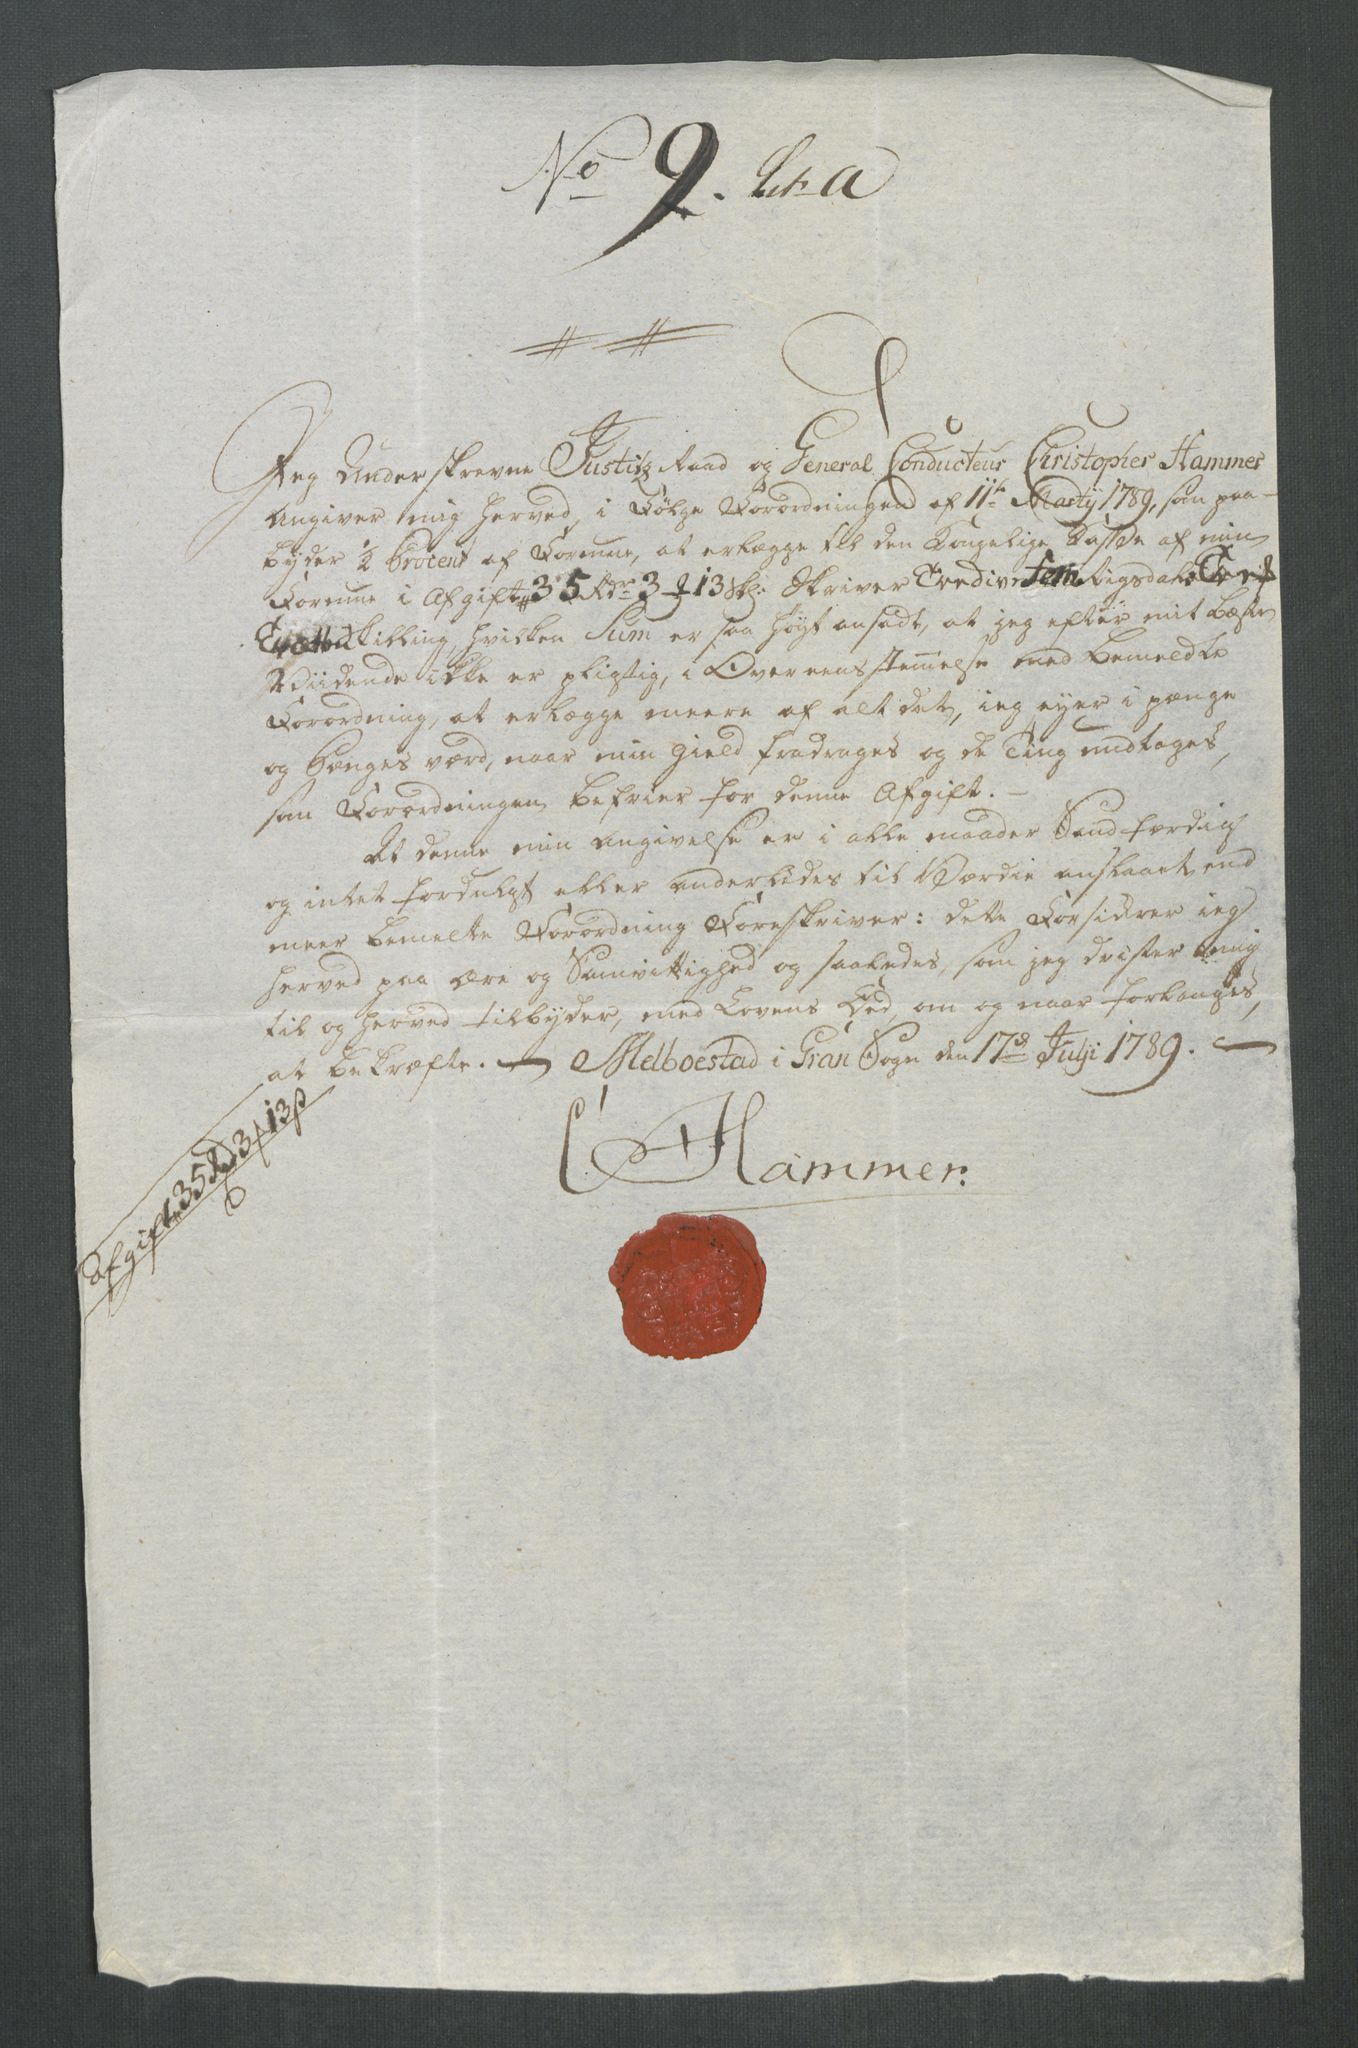 No 9. Litr a
Jeg Underskrevne Justitz Raad og General Conducteur Christopher Hammer
Angiver mig herved, i Fölge Forordningen af 11te Martij 1789, som paa-
byder 1/2 Procent af Formue, at erlægge til den Kongelige Casse af min
Formue i Afgift 35 Rdr 3 ɟ 13 Skl: Skriver Tredive fem Rigsdaler Tre ɟ
Trætten Skilling, hvilken Sum er saa høyt ansadt, at jeg efter mit bæste
Vidende ikke er pligtig, i Overeensstemmelse med bemeldte
Forordning, at erlægge meere af alt det, ieg eyer i penge
og Penges værd, naar min Gield fradrages og de Ting undtages,
som Forordningen befrier for denne Afgift. -
At denne min Angivelse er i alle maader Sandfærdig
og intet fordulgt eller anderledes til Værdie anslaaet end
meer bemelte Forordning Foreskriver: dette Forsikrer ieg
herved paa ære og Samvittighed og saaledes, som jeg drister mig
til og herved tilbyder, med Lovens Eed, om og naar forlanges,
at bekræfte. — Melboestad i Gran Sogn den 17de Julji 1789. —
C Hammer.
Afgift 35 Rd 3 ɟ 13 ß